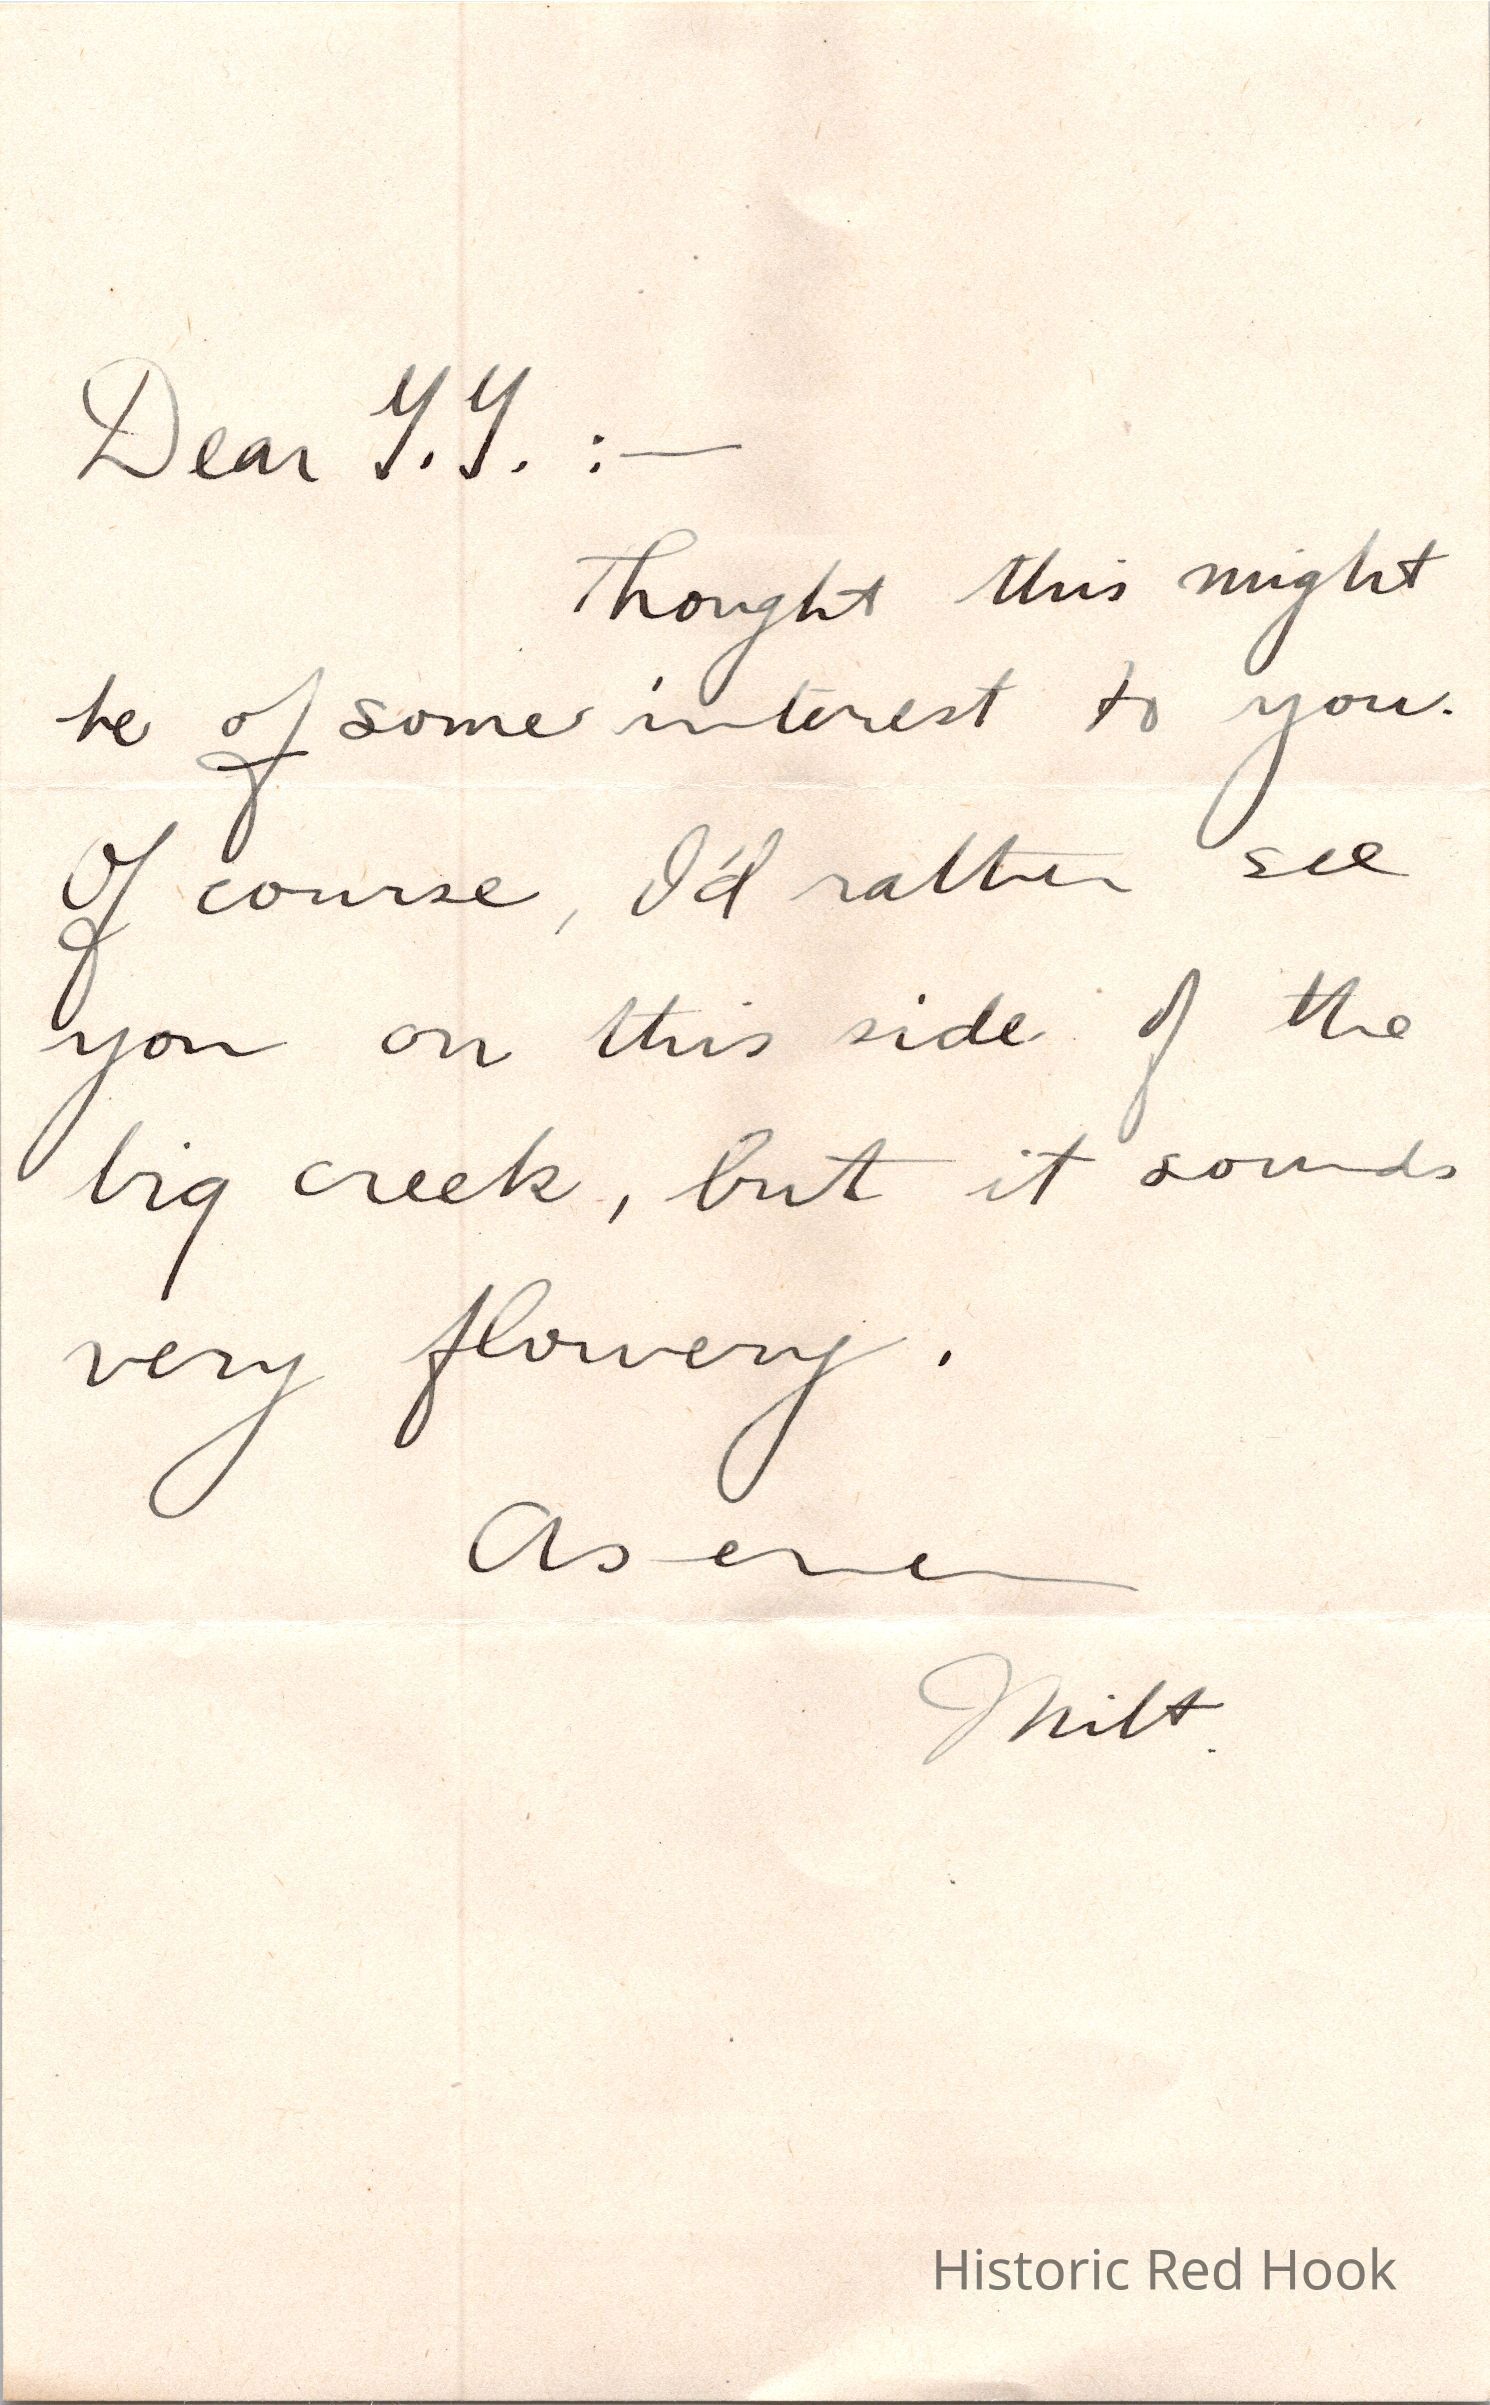 Dear Y.Y. :—
Thought this might
be of some interest to you.
Of course, I'd rather see
you on this side of the
big creek, but it sounds
very flowery.
As ever
Milt.
Historic Red Hook